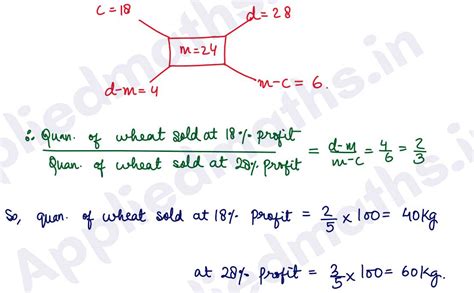 C = 18
d = 28
m = 24
d-m = 4
m-c = 6.
∴ Quan. of wheat sold at 18% profit / Quan. of wheat sold at 28% profit = d-m/m-c = 4/6 = 2/3
So, quan. of wheat sold at 18% profit = 2/5 × 100 = 40kg
at 28% profit = 3/5 × 100 = 60kg.
Appliedmaths.in
Appliedmaths.in